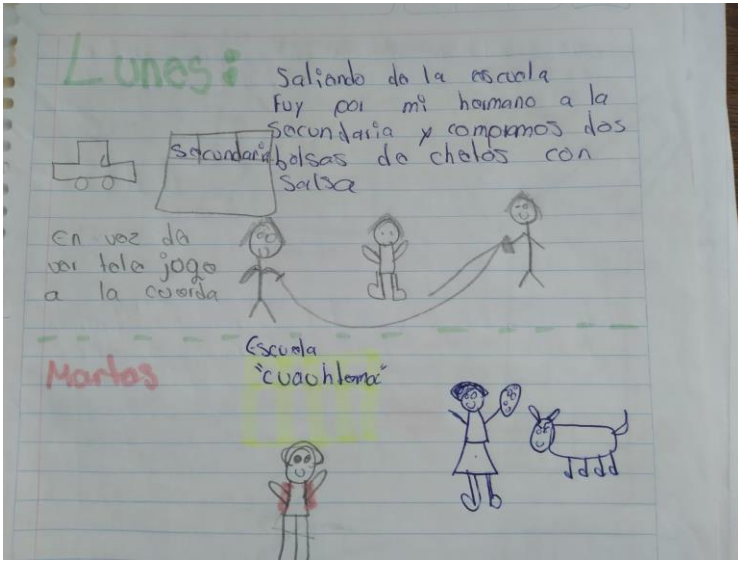 Lunes:
Saliendo de la escuela
Fuy por mi hermano a la
secundaria y compramos dos
bolsas de chetos con
salsa
secundaria
En vez de
ver tele jogo
a la cuerda
Martes
Escuela
"cuauhtemoc"